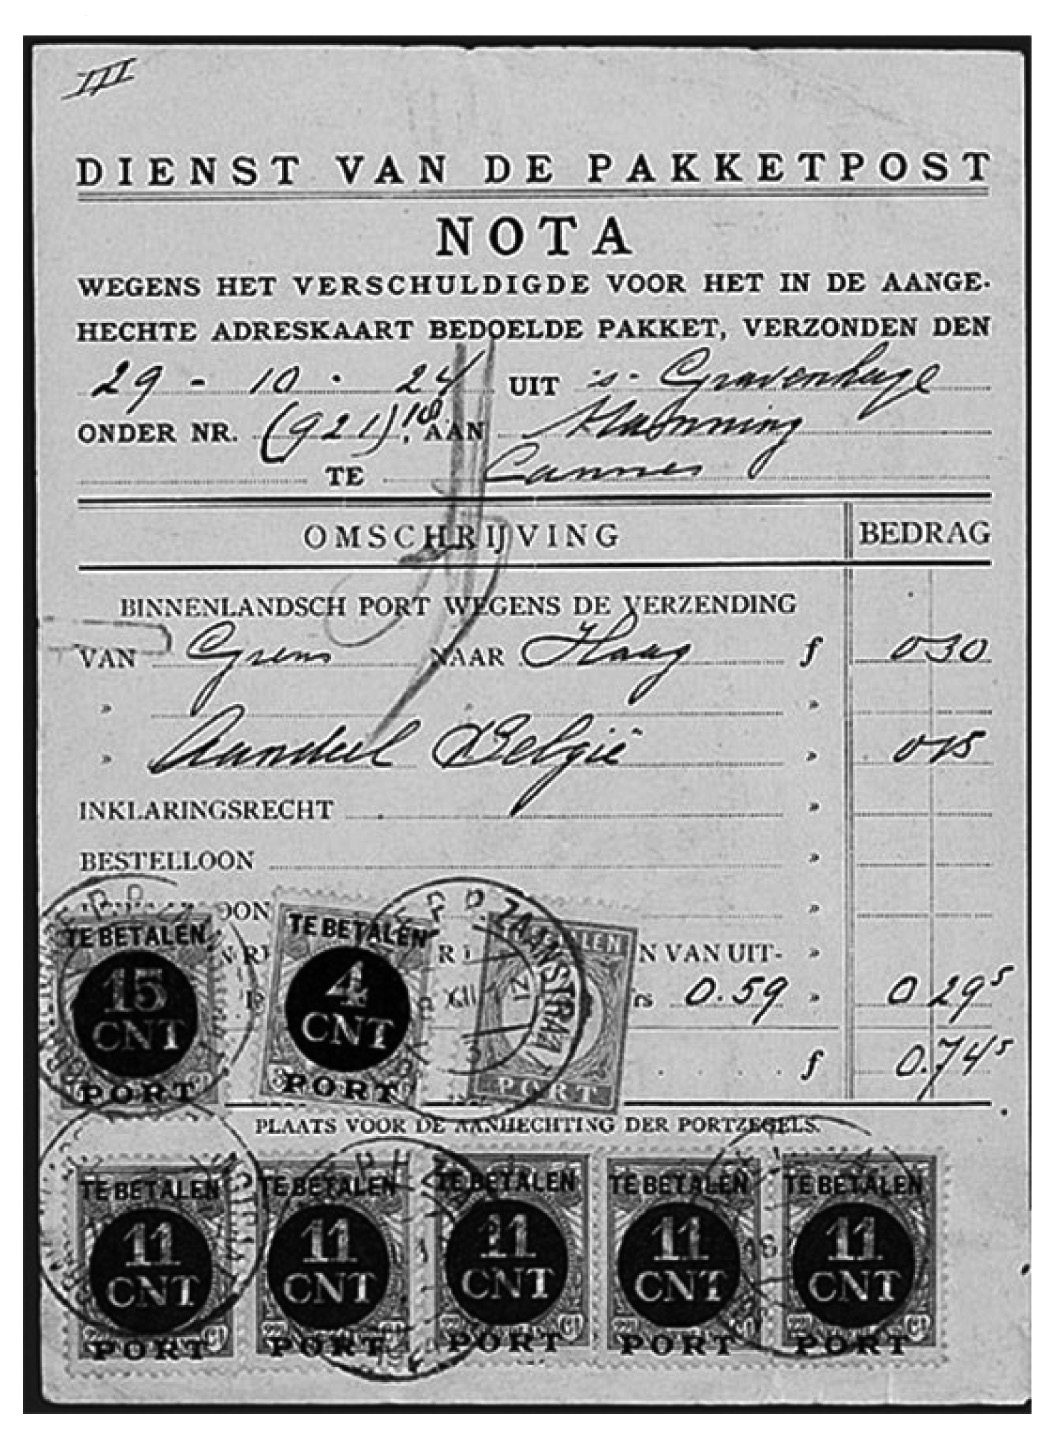 III
DIENST VAN DE PAKKETPOST
NOTA
WEGENS HET VERSCHULDIGDE VOOR HET IN DE AANGE-
HECHTE ADRESKAART BEDOELDE PAKKET, VERZONDEN DEN
29 - 10 - 24 UIT 's- Gravenhage
ONDER NR. (921), AAN Manning
TE Cannes
OMSCHRIJVING BEDRAG
BINNENLANDSCH PORT WEGENS DE VERZENDING
VAN Grens NAAR Haag f 0 30
" " "
" Aandeel België " 0 15
INKLARINGSRECHT "
BESTELLOON "
OON "
N VAN UIT- "
rs 0.59 " 0 29⁵
f 0.74⁵
TE BETALEN 15 CNT PORT
TE BETALEN 4 CNT PORT
PORT
ZAANSTRAAT
PLAATS VOOR DE AANHECHTING DER PORTZEGELS.
TE BETALEN TE BETALEN TE BETALEN TE BETALEN TE BETALEN
11 11 11 11 11
CNT CNT CNT CNT CNT
PORT PORT PORT PORT PORT